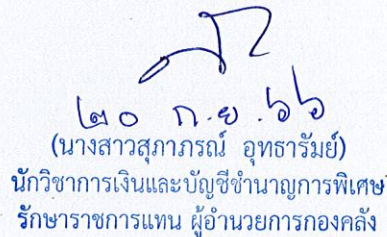 ๒๐ ก.ย. ๖๖
(นางสาวสุภาภรณ์ อุทธารัมย์)
นักวิชาการเงินและบัญชีชำนาญการพิเศษ
รักษาราชการแทน ผู้อำนวยการกองคลัง